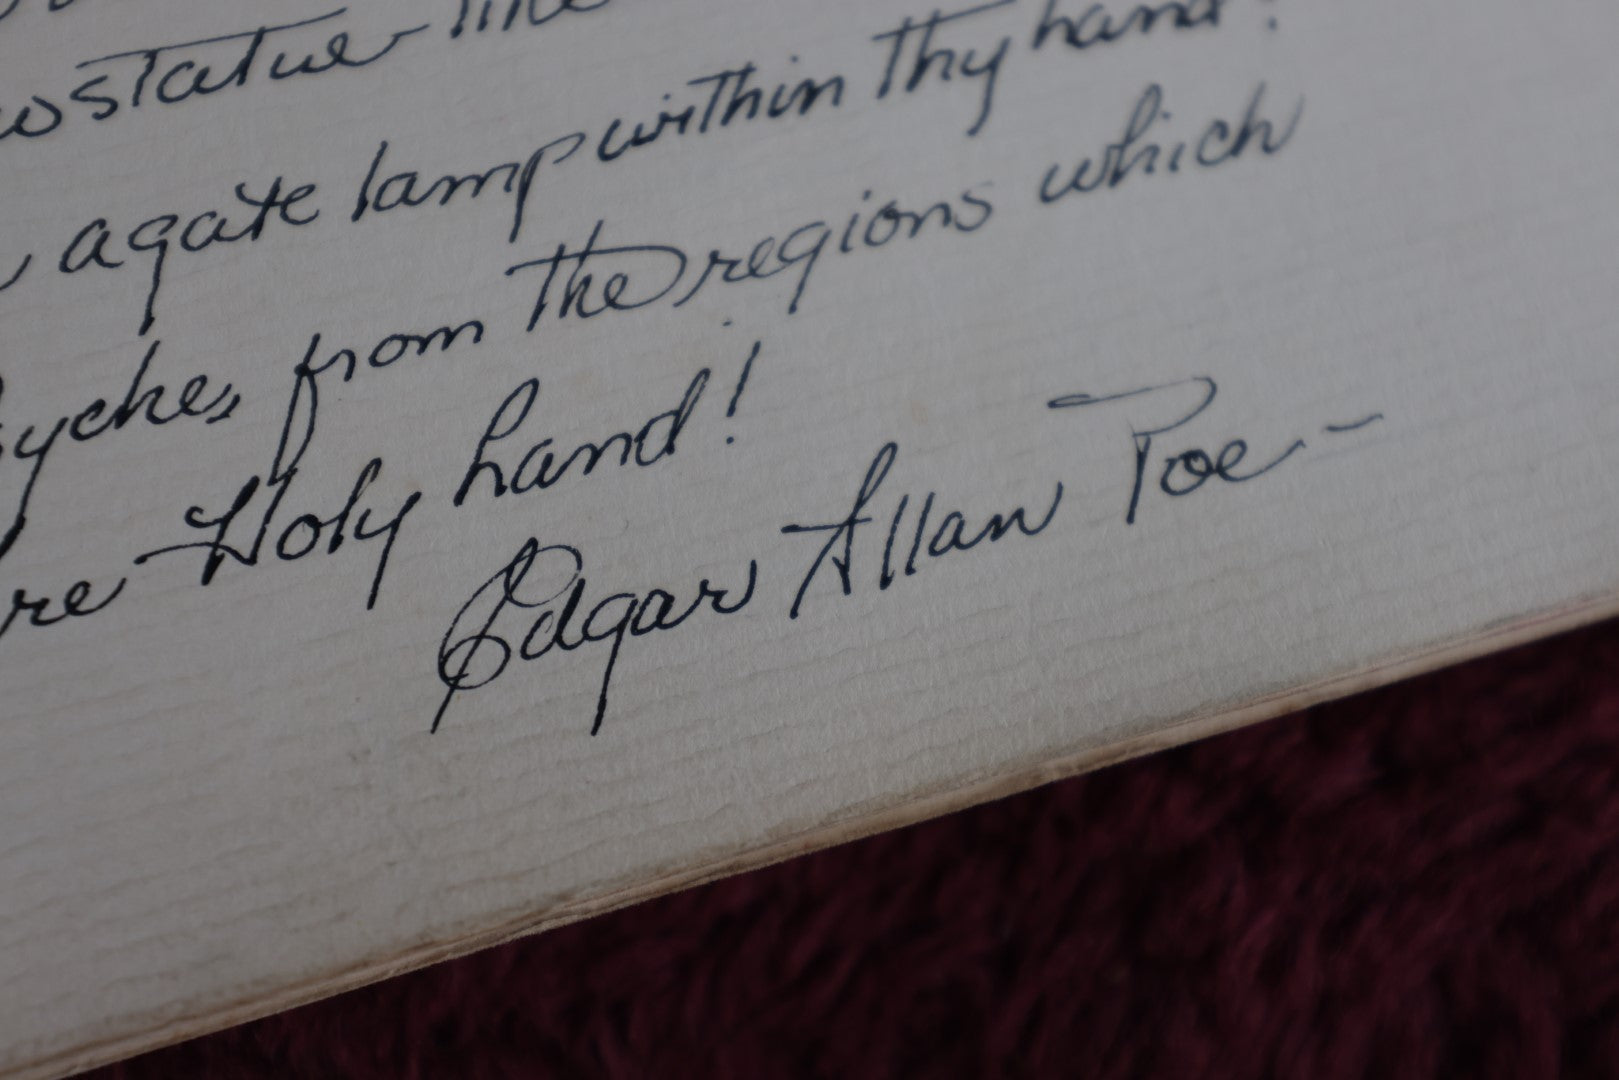 statue-like
agate lamp within thy hand!
Psyche, from the regions which
are Holy hand!
Edgar Allan Poe-